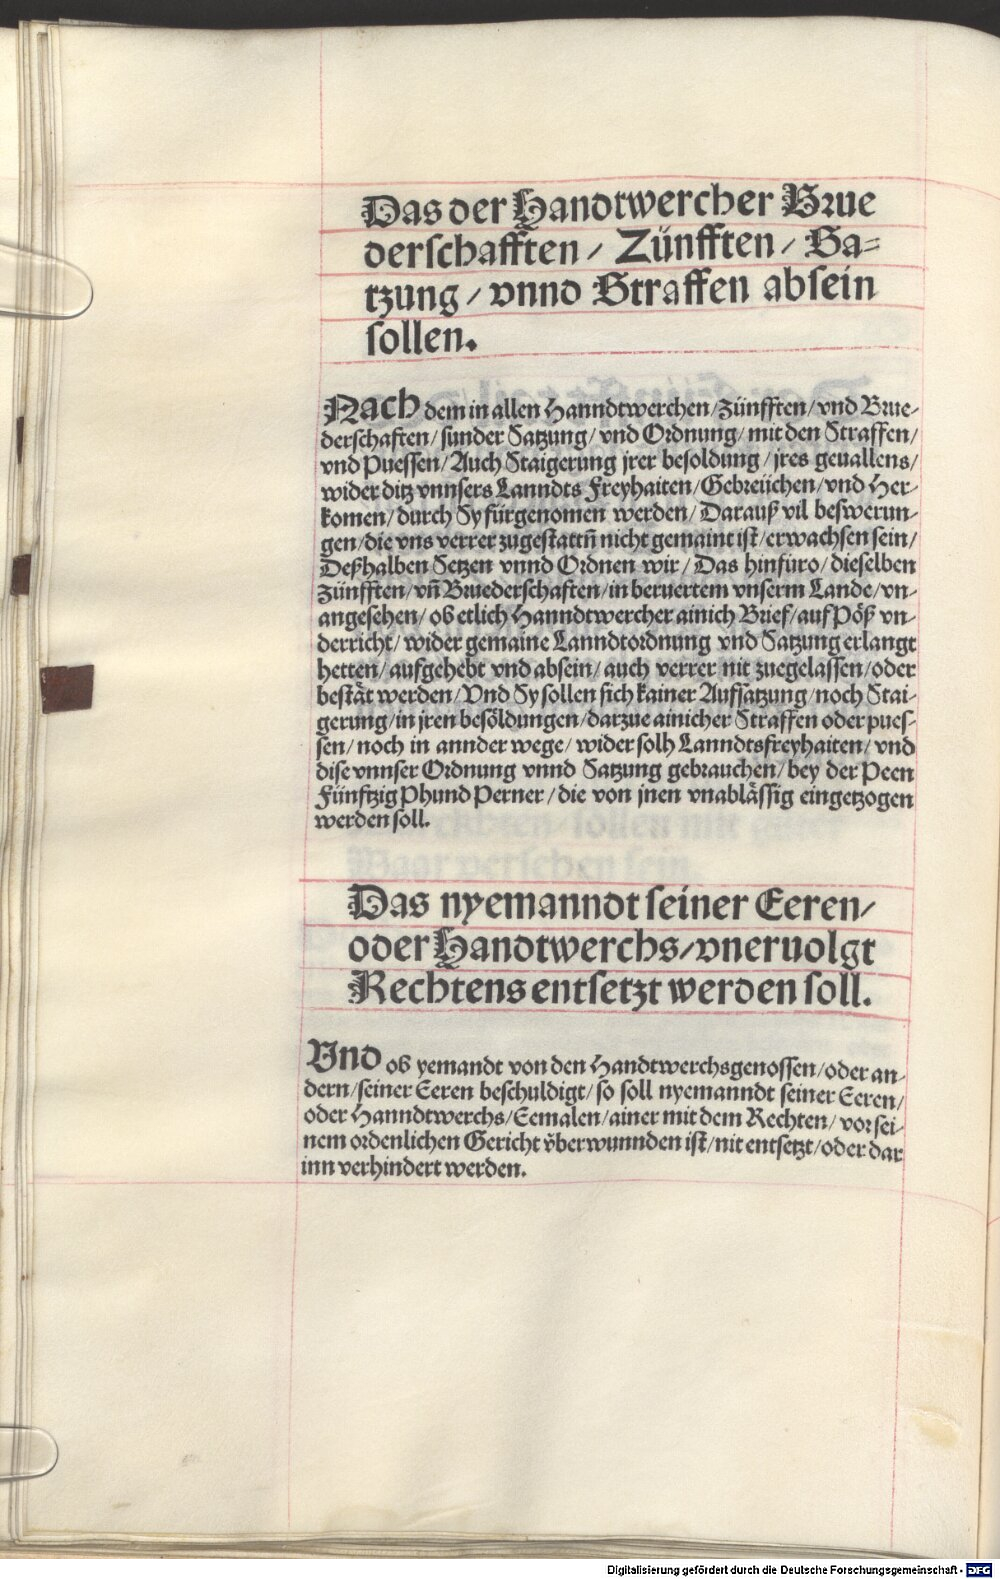 Das der Handtwercher Brue
derschafften / Zünfften / Sa=
tzung / vnnd Straffen absein
sollen.
Nach dem in allen Hanndtwerchen / Zünfften / vnd Brue-
derschaften / sunder Satzung / vnd Ordnung / mit den Straffen /
vnd Puessen / Auch Staigerung jrer besoldung / jres geuallens /
wider ditz vnnsers Lanndts Freyhaiten / Gebreüchen / vnd Her-
komen / durch Sy fürgenomen werden / Darauß vil beswerun-
gen / die vns verrer zugestattn̄ nicht gemaint ist / erwachsen sein /
Deßhalben Setzen vnnd Ordnen wir / Das hinfüro / dieselben
Zünfften / vn̄ Bruederschaften / in beruertem vnserm Lande / vn-
angesehen / ob etlich Hanndtwercher ainich Brief / auf Pöß vn-
derricht / wider gemaine Lanndtordnung vnd Satzung erlangt
hetten / aufgehebt vnd absein / auch verrer nit zuegelassen / oder
bestät werden / Vnd Sy sollen sich kainer Auffsatzung / noch Stai-
gerung / in jren besöldungen / darzue ainicher Straffen oder pues-
sen / noch in annder wege / wider solh Lanndtsfreyhaiten / vnd
dise vnnser Ordnung vnnd Satzung gebrauchen / bey der Peen
Fünftzig Phund Perner / die von jnen vnablässig eingetzogen
werden soll.
Das nyemanndt seiner Eeren /
oder Handtwerchs / vneruolgt
Rechtens entsetzt werden soll.
Vnd ob yemandt von den Handtwerchsgenossen / oder an-
dern / seiner Eeren beschuldigt / so soll nyemanndt seiner Eeren /
oder Hanndtwerchs / Eemalen / ainer mit dem Rechten / vor sei-
nem ordenlichen Gericht vͤberwunnden ist / nit entsetzt / oder dar
inn verhindert werden.
Digitalisierung gefördert durch die Deutsche Forschungsgemeinschaft - DFG